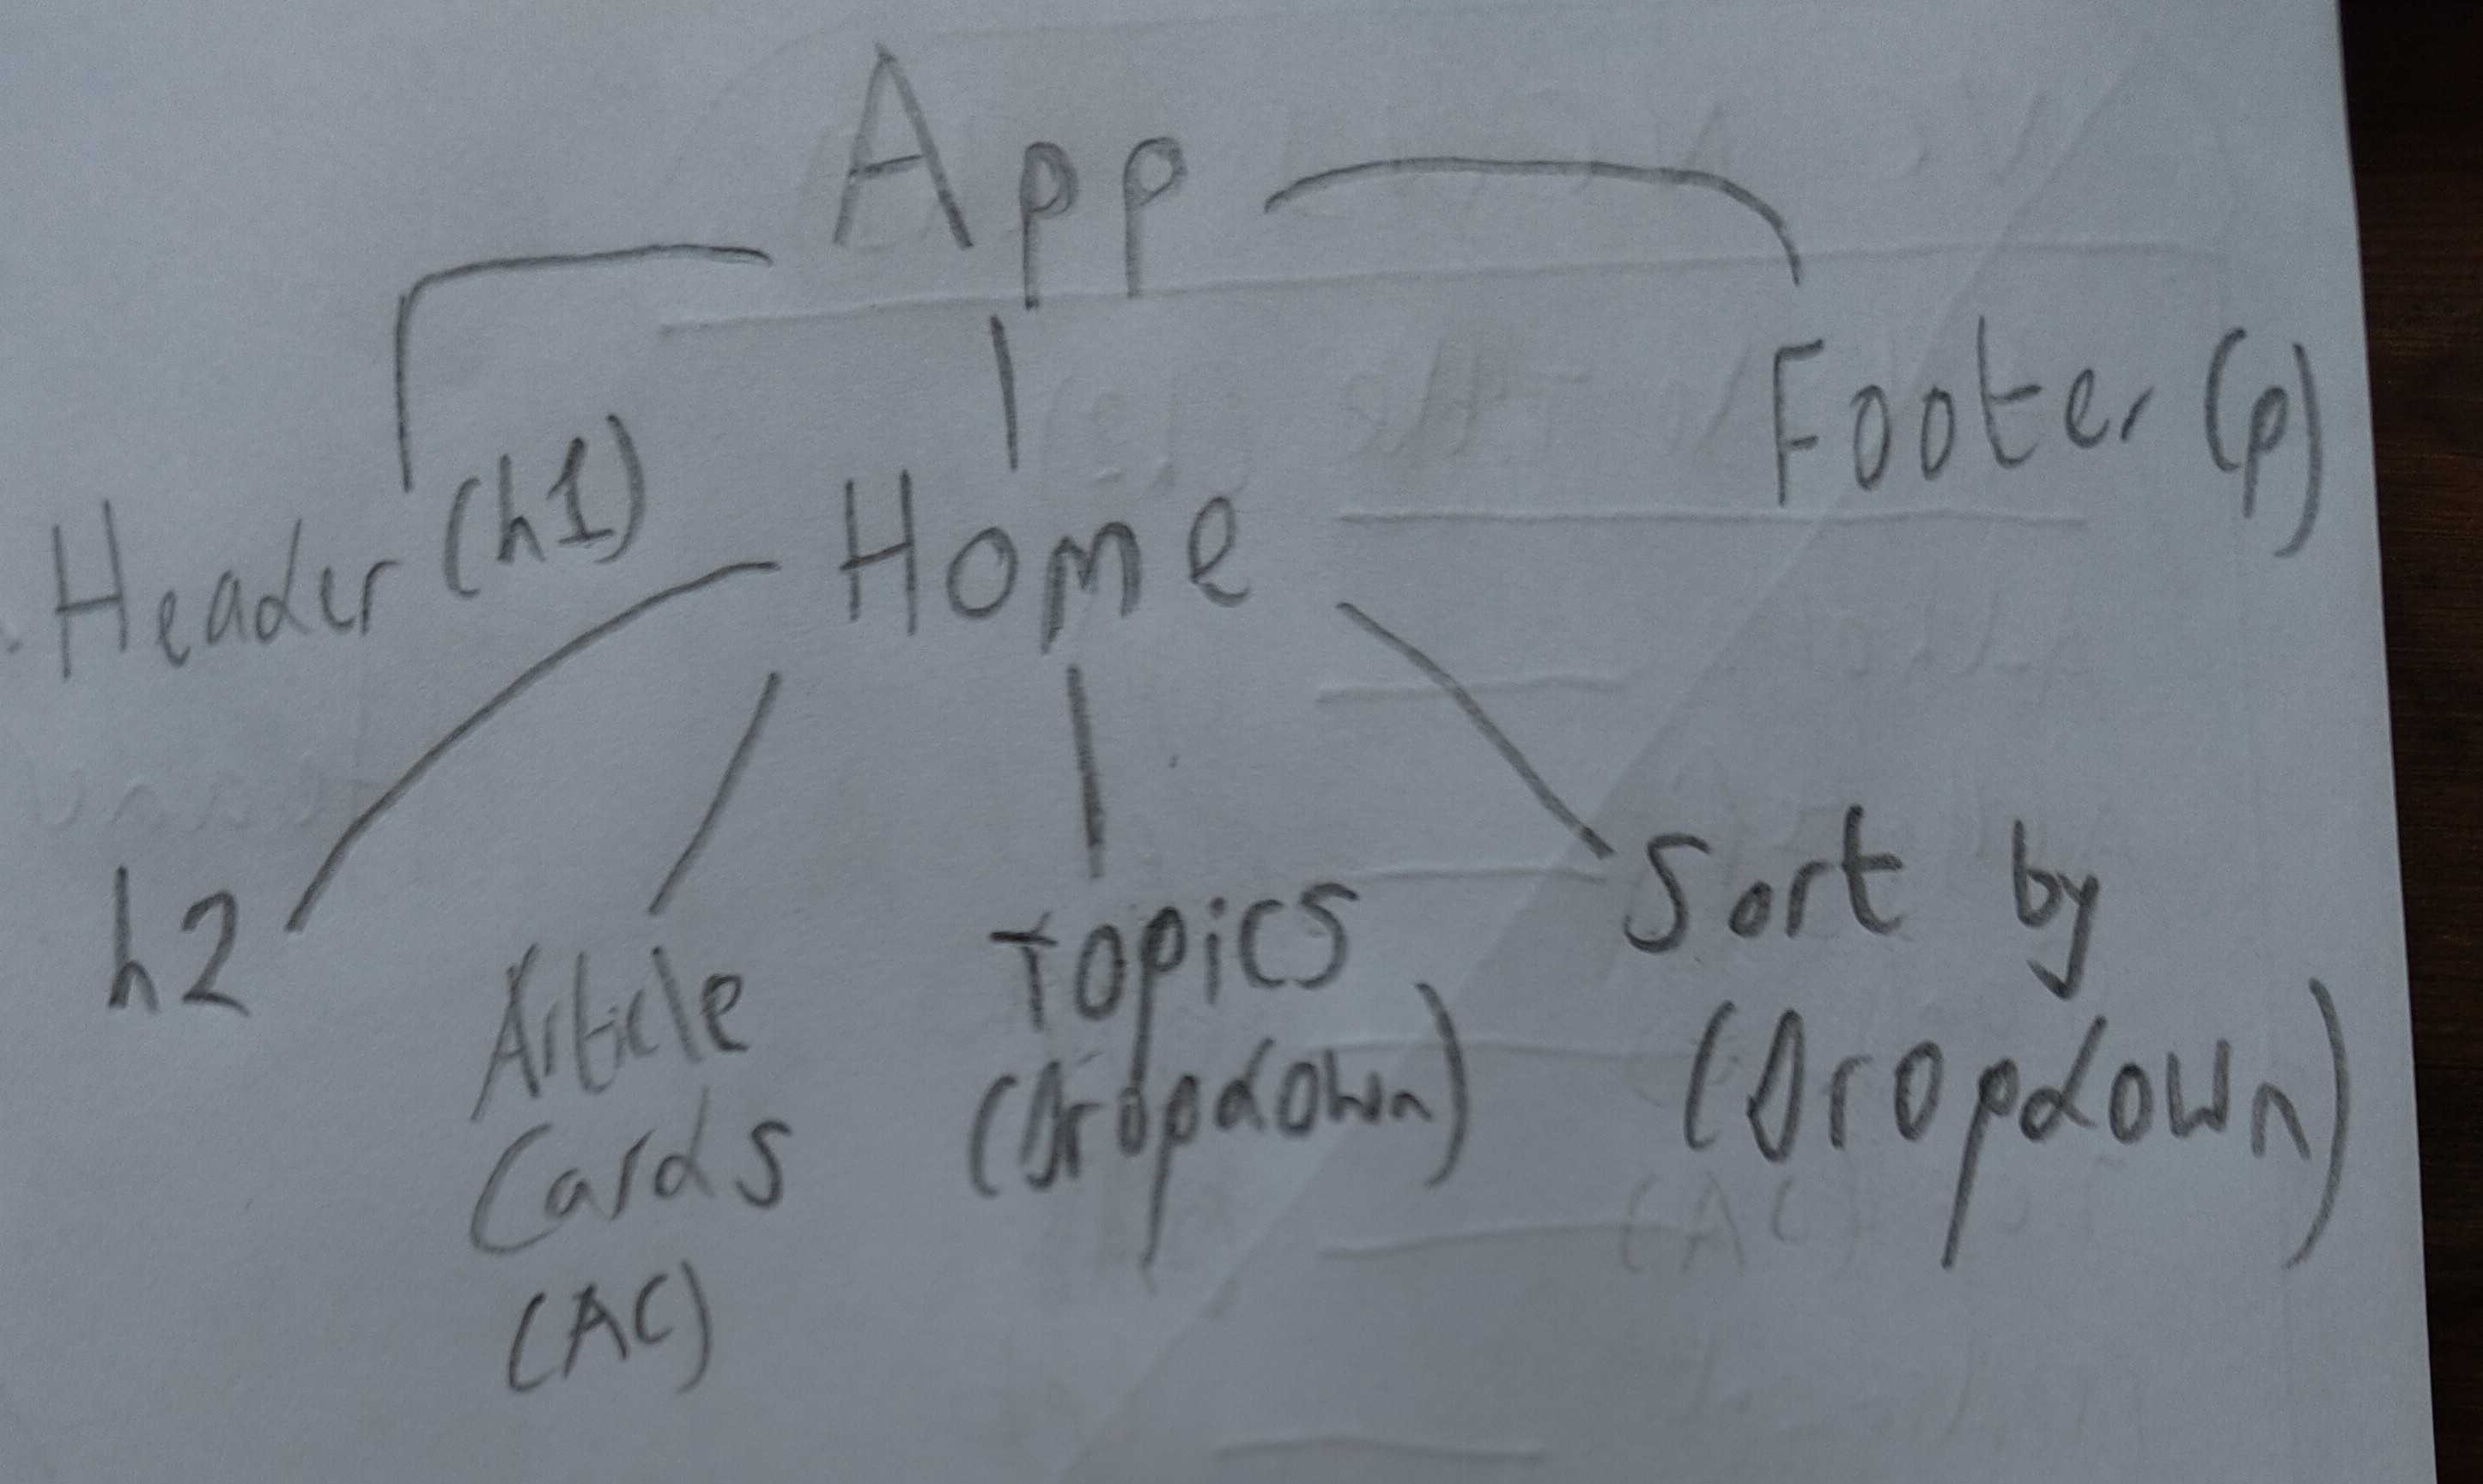 App
Header (h1)
Home
Footer (p)
h2
Article
Cards
(AC)
Topics
(Dropdown)
Sort by
(Dropdown)